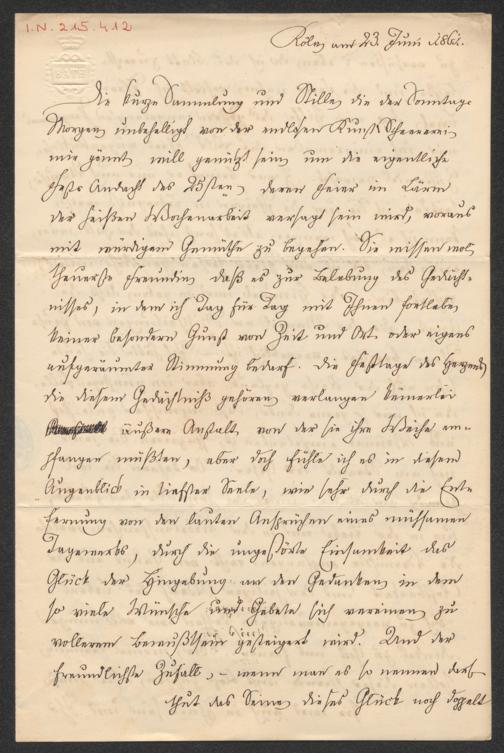 I.N. 215.412
Köln am 23 Juni 1861.
Die kurze Sammlung und Stille, die der Sonntags-
Morgen unbehelligt von der endlosen Kunst
mir gönnt, will genützt sein, um die eigentliche
Fest Andacht des 25sten, deren Feier im Lärm
der heißen Wochenarbeit versagt sein wird, voraus
mit würdigem Gemüthe zu begehen. Sie wissen wol
theuerste Freundin, daß es zur Belebung des Gedächt-
nisses, in dem ich Tag für Tag mit Ihnen fortlebe,
keiner besondern Gunst von Zeit und Ort oder eigens
aufgeräumter Stimmung bedarf. Die Festtage des Herzens,
die diesem Gedächtniß gehören, verlangen keinerlei
äußere Anstalt, von der sie ihre Weihe em-
pfangen müßten, aber doch fühle ich es in diesem
Augenblick in tiefster Seele, wie sehr durch die Ent-
fernung von den lauten Ansprüchen eines mühsamen
Tagewerks, durch die ungestörte Einsamkeit das
Glück der Hingebung an den Gedanken, in dem
so viele Wünsche und Gebete sich vereinen, zu
vollerem Bewußtsein gesteigert wird. Und der
freundlichste Zufall, – wenn man es so nennen darf
thut das Seine, dieses Glück noch doppelt